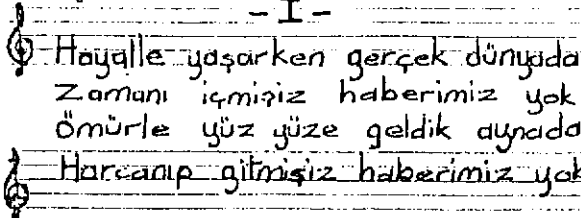 - I -
Hayalle yaşarken gerçek dünyada
Zamanı içmişiz haberimiz yok
Ömürle yüz yüze geldik aynada
Harcanıp gitmişiz haberimiz yok